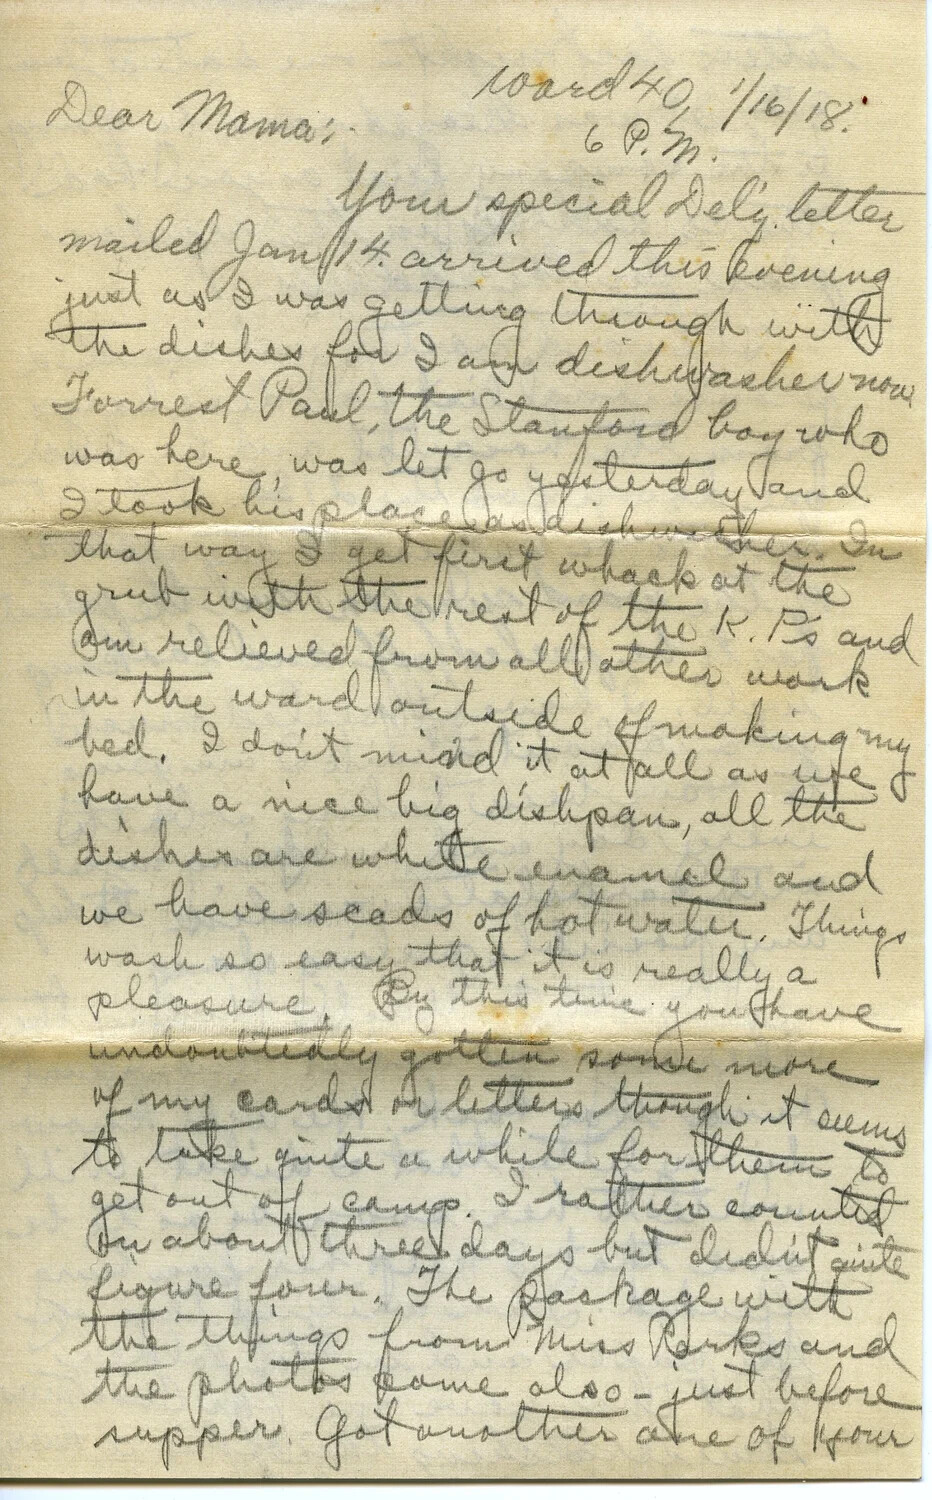 Ward 40, 1/16/18.
Dear Mama:
6 P.M.
Your special Del'y letter
mailed Jan 14. arrived this evening
just as I was getting through with
the dishes for I am dishwasher now.
Forrest Paul, the Stanford boy who
was here, was let go yesterday and
I took his place as dishwasher. In
that way I get first whack at the
grub with the rest of the K. P.s and
am relieved from all other work
in the ward outside of making my
bed. I don't mind it at all as we
have a nice big dishpan, all the
dishes are white enamel and
we have scads of hot water. Things
wash so easy that it is really a
pleasure. By this time you have
undoubtedly gotten some more
of my cards or letters though it seems
to take quite a while for them to
get out of camp. I rather counted
on about three days but didn't quite
figure four. The package with
the things from Miss Parks and
the photos came also - just before
supper. Got another one of your